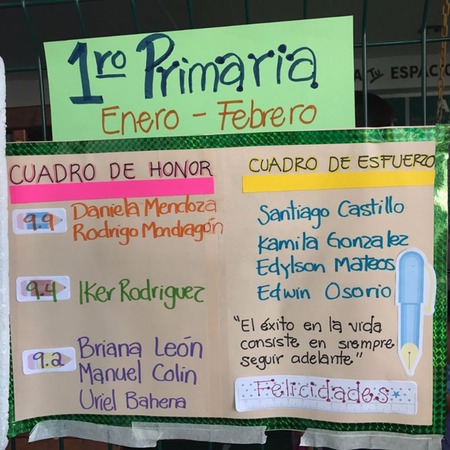 1ro Primaria
Enero - Febrero
TU ESPACI
CUADRO DE HONOR
9.9
Daniela Mendoza
Rodrigo Mondragón
9.4
Iker Rodriguez
9.2
Briana León
Manuel Colin
Uriel Bahena
CUADRO DE ESFUERZO
Santiago Castillo
Kamila Gonzalez
Edylson Mateos
Edwin Osorio
"El éxito en la vida
consiste en siempre
seguir adelante."
Felicidades